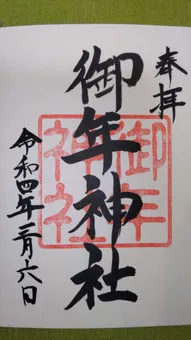 奉拝
御年神社
御年神社
令和四年二月六日